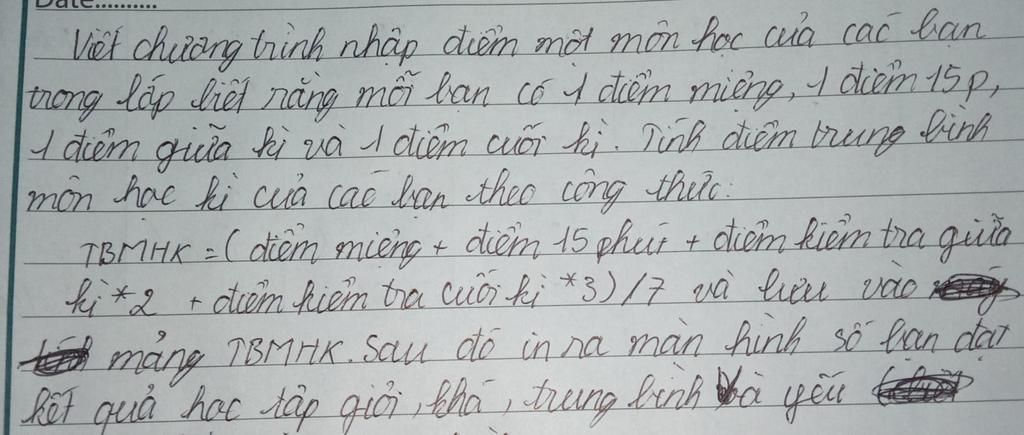 Date..........
Viết chương trình nhập điểm một môn học của các bạn
trong lớp biết rằng mỗi bạn có 1 điểm miệng, 1 điểm 15p,
1 điểm giữa kì và 1 điểm cuối kì. Tính điểm trung bình
môn học kì của các bạn theo công thức:
TBMHK = ( điểm miệng + điểm 15 phút + điểm kiểm tra giữa
kì *2 + điểm kiểm tra cuối kì *3) /7 và lưu vào
mảng TBMHK. Sau đó in ra màn hình số bạn đạt
kết quả học tập giỏi, khá, trung bình và yếu